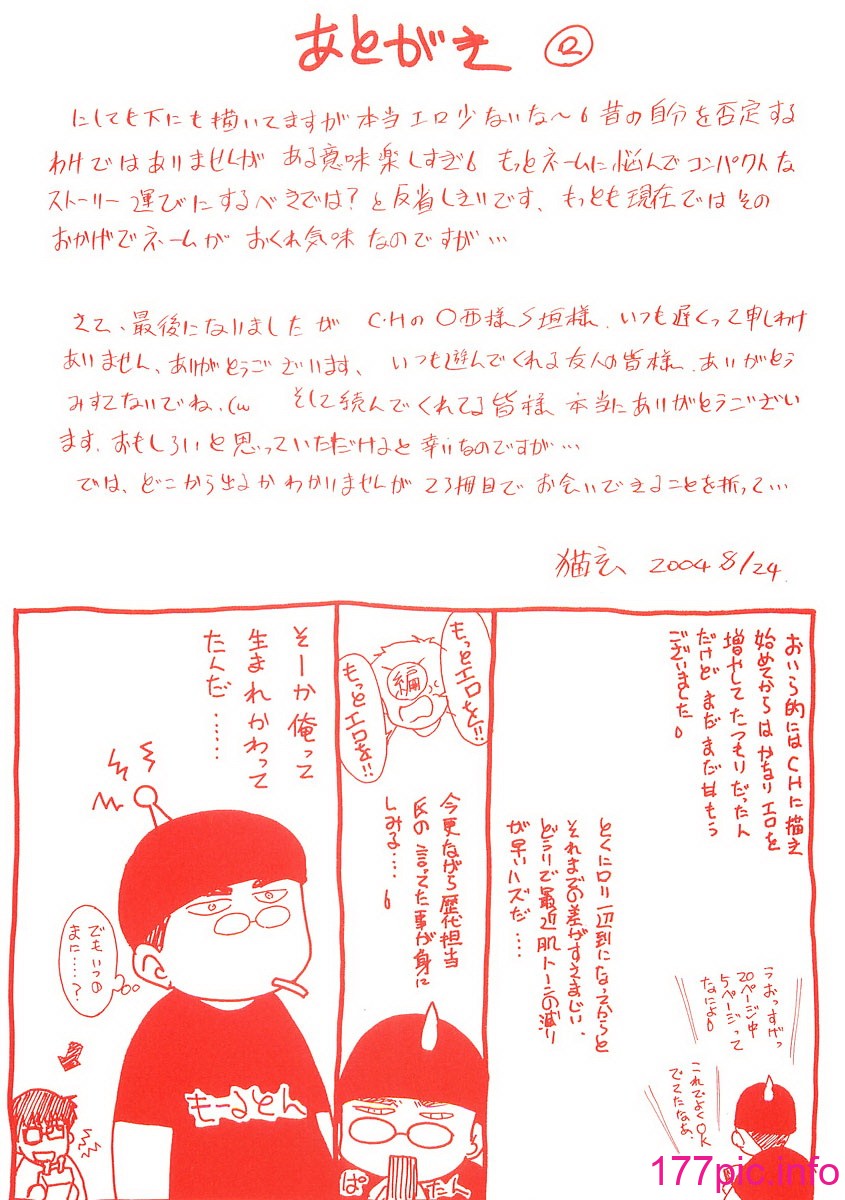 あとがき ②
にしても下にも描いてますが本当エロ少ないな〜 昔の自分を否定する
わけではありませんが ある意味楽しすぎ もっとネームに悩んでコンパクトな
ストーリー運びにするべきでは?と反省しきりです、もっとも現在ではその
おかげでネームが おくれ気味なのですが…
さて、最後になりましたが C・Hの〇西様 S垣様、いつも遅くって申しわけ
ありません、ありがとうございます、 いつも遊んでくれる友人の皆様、ありがとう
みすてないでね、(w そして読んでくれてる皆様 本当にありがとうござい
ます、おもしろいと思っていただけると幸いなのですが…
では、どこから出るかわかりませんが 23冊目で お会いできることを祈って…
猫玄 2004 8/24.
おいら的にはCHに描き
始めてからはかなりエロを
増やしてたつもりだったん
だけど まだまだ甘もう
ございました
うおっすげっ
20ページ中
5ページって
なによ
これでよくOK
でてたなぁ、
とくにロリ一辺倒になってからと
それまでの差がすさまじい、
どうりで最近肌トーンの減り
が早いハズだ……
もっとエロを!!
編
もっとエロを!!
今更ながら歴代担当
氏の言ってた事が身に
しみる……
ぱたん
そーか俺って
生まれかわって
たんだ……
でもいつの
まに……?
もーるとん
177pic.info